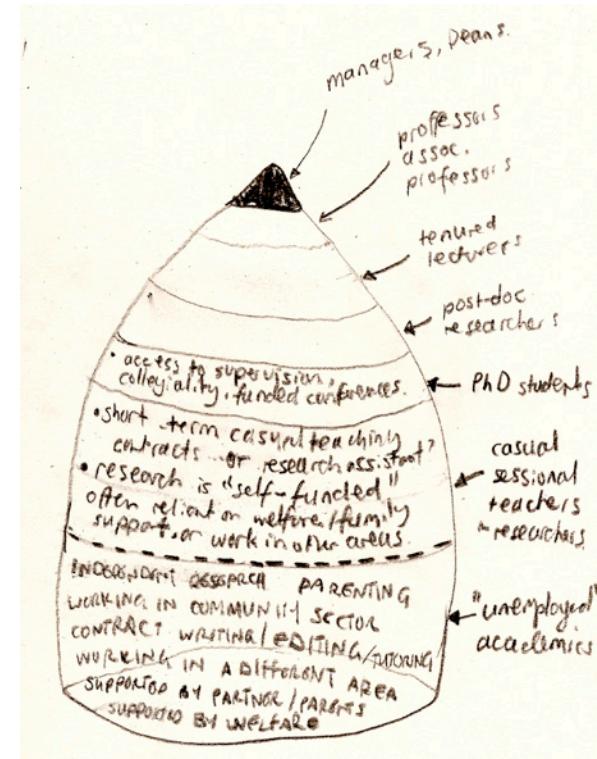 managers, Deans.
proffessors
assoc.
professors
tenured
lecturers
post-doc
researchers
• access to supervision,
collegiality, funded conferences.
PhD students
• short term casual teaching
contracts or research assistant
• research is "self-funded"
often reliant on welfare/family
support, or work in other areas.
casual
sessional
teachers
researchers
INDEPENDENT RESEARCH PARENTING
WORKING IN COMMUNITY SECTOR
CONTRACT WRITING/EDITING/TUTORING
WORKING IN A DIFFERENT AREA
SUPPORTED BY PARTNER/PARENTS
SUPPORTED BY WELFARE
"unemployed"
academics